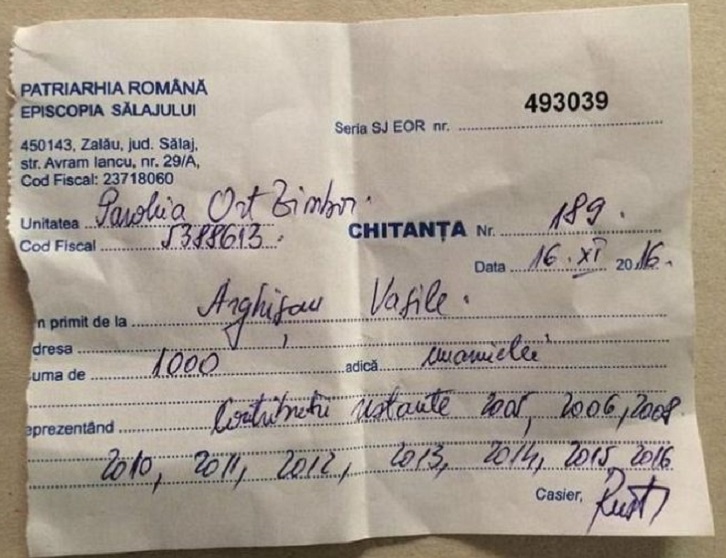 PATRIARHIA ROMÂNĂ
EPISCOPIA SĂLAJULUI
493039
Seria SJ EOR nr.
450143, Zalău, jud. Sălaj,
str. Avram Iancu, nr. 29/A,
Cod Fiscal: 23718060
Unitatea Parohia Ort Zimbor.
Cod Fiscal 5388613.
CHITANȚA Nr. 189.
Data 16. XI 2016.
m primit de la Arghișan Vasile.
dresa
uma de 1000 adică unamielei
eprezentând Contributii restante 2005, 2006, 2008
2010, 2011, 2012, 2013, 2014, 2015, 2016
Casier,